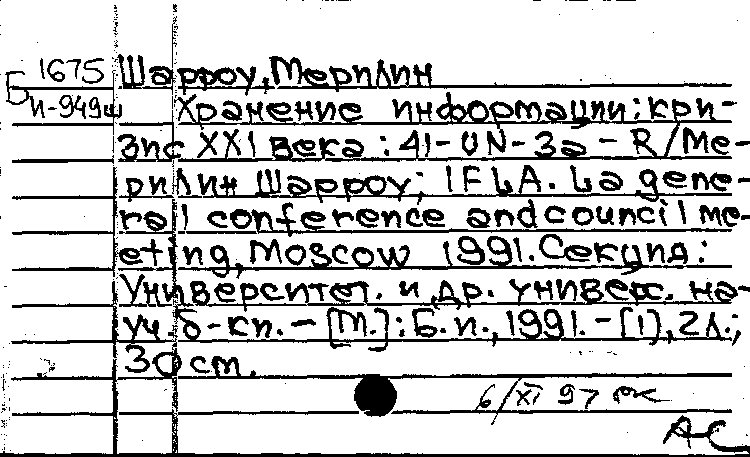 Б 1675
И-949ш
Шарроу, Мерилин
Хранение информации: кри-
зис XXI века : 41-UN-3а-R/Ме-
рилин Шарроу; IFLA. La gene-
rall conference and council me-
eting, Moscow 1991. Секция:
Университет. и др. универс. на-
уч. б-ки. - [М.]: Б.и., 1991. - [1], 2 л.;
30 см.
6/XI 97
АС